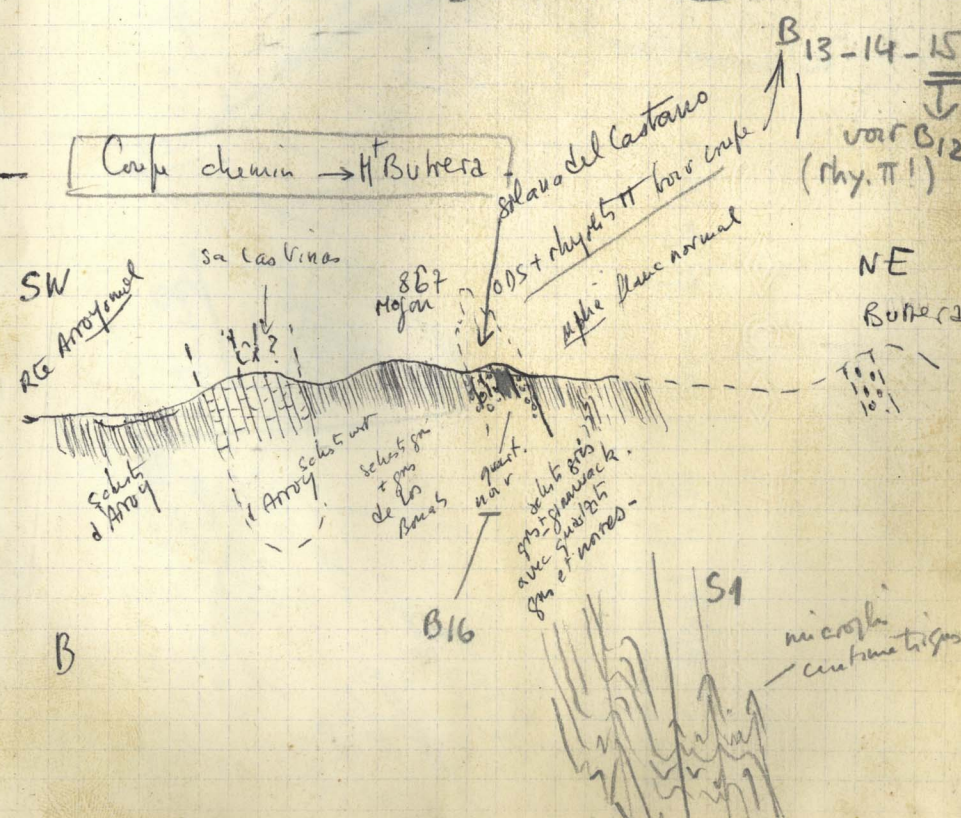 B 13-14-15
voir B12
(rhy. π!)
Coupe chemin → Mt Butrera
Solana del Castano
ODS + rhyolits π voir coupe
NE
Butrera
SW
Rte Arroyomol
Sa Las Vinas
?
867
Mojon
blanc normal
Schists
d'Arroy
Schist vert
d'Arroy
Schist gris
+ gris
de los
Bonals
quart.
noir
schists gris
gris + grauwack.
avec quartzits
gris et noires-
B16
S1
microplis
centimetriques
B